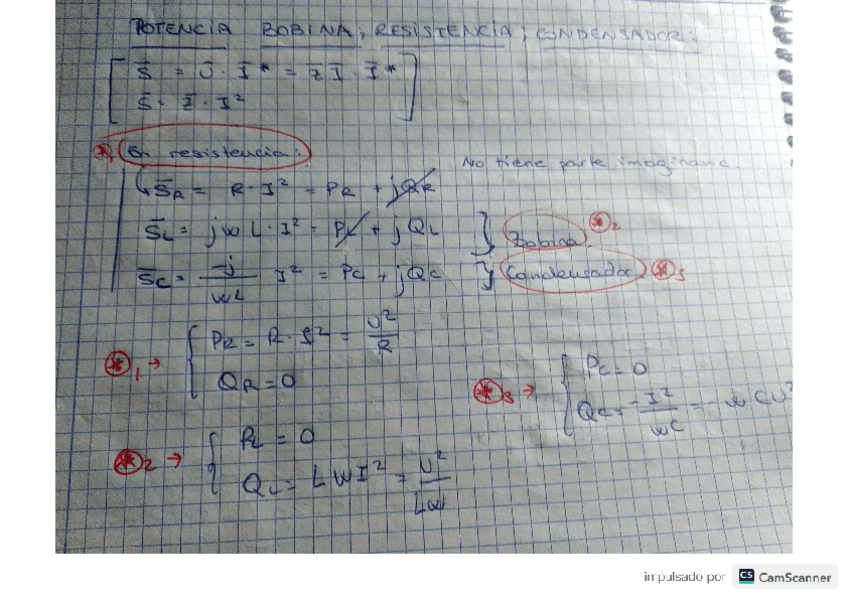 POTENCIA BOBINA, RESISTENCIA, CONDENSADOR:
S̄ = Ū · Ī* = Z̄ Ī · Ī*
S̄ = Z̄ · I²
*₁ En resistencia:
No tiene parte imaginaria.
S̄R = R · I² = PR + jQR
S̄L = jwL · I² = PL + jQL } Bobina *₂
S̄C = -j/wL I² = PC + jQC } Condensador *₃
*₁ → { PR = R · I² = U²/R
QR = 0
*₃ → { PC = 0
QC = -I²/wC = -wCU²
*₂ → { PL = 0
QL = LWI² = U²/LW
impulsado por CS CamScanner